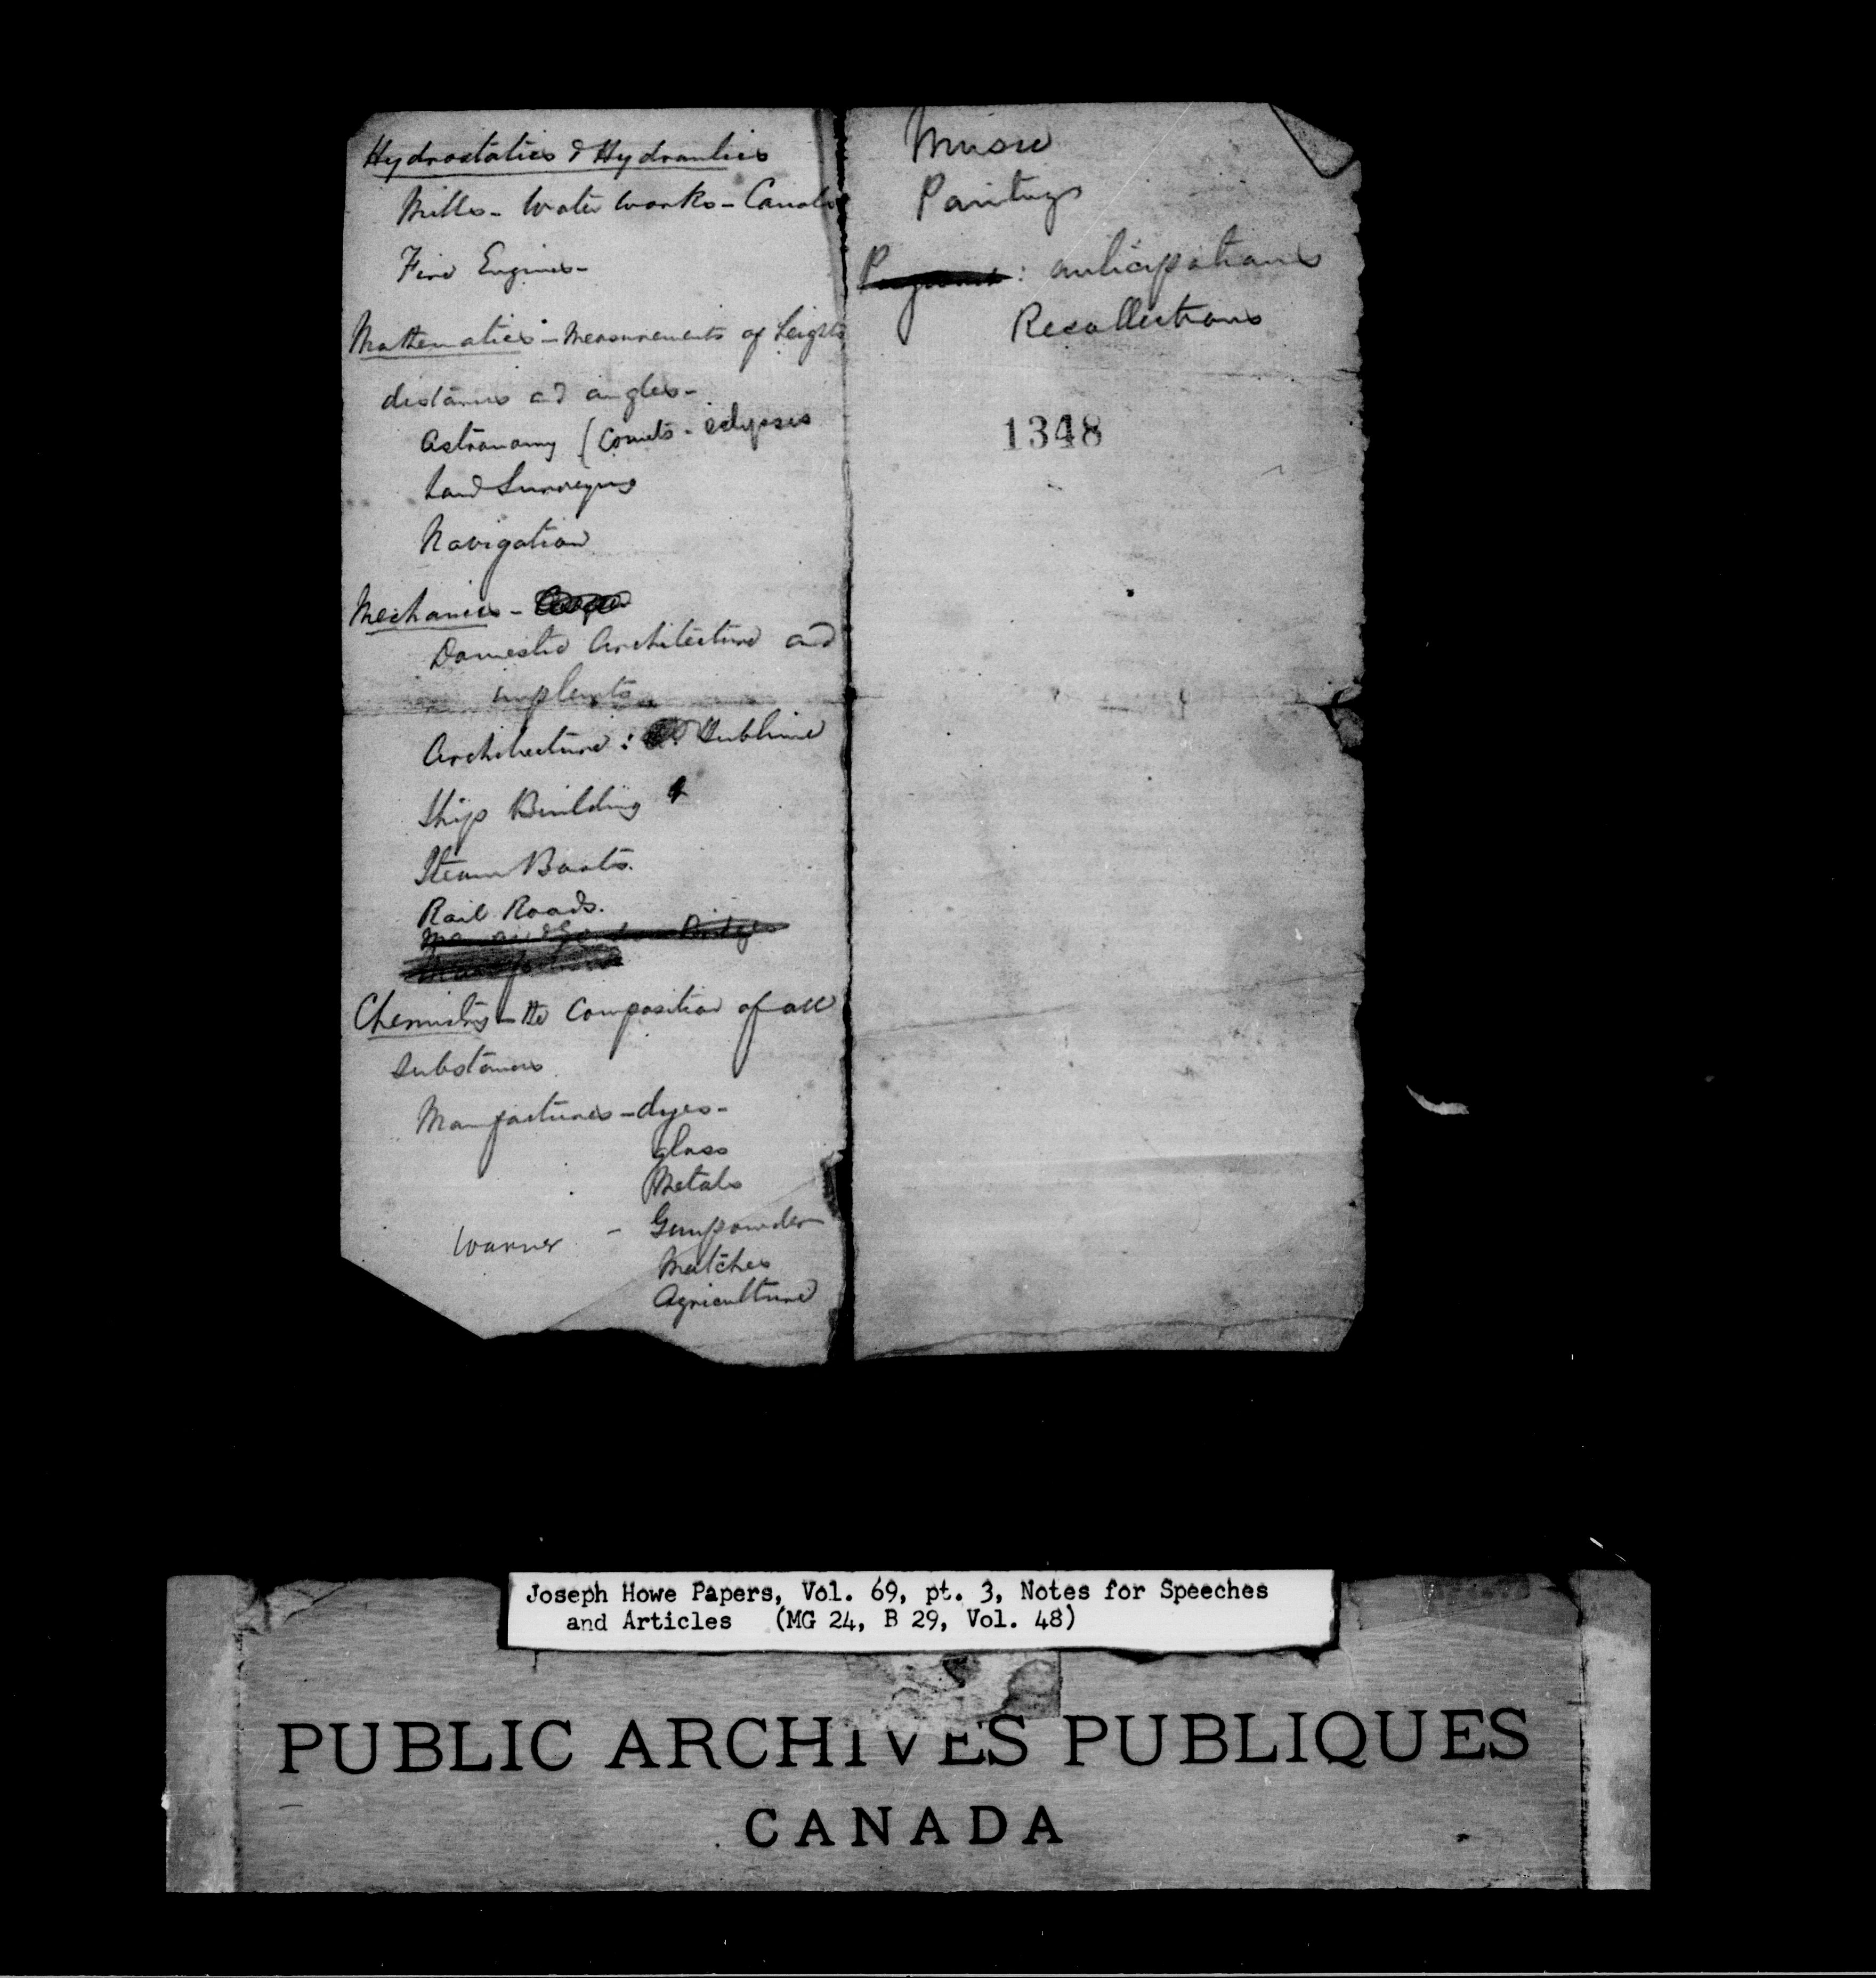 Hydrostatics & Hydraulics
Mills - Water Works - Canals
Fire Engines -
Mathematics - Measurements of heights
distances and angles -
Astronomy (Comets - eclipses
Land Surveying
Navigation
Mechanics -
Domestic Architecture and
implents
Architecture : Sublime
Ship Building
Steam Boats.
Rail Roads.
Chemistry - the Composition of all
Substances
Manfactures - dyes -
glass
Metals
Warner - Gunpowder
Matches
Agriculture
Music
Paintings
: anticipations
Recollections
1348
Joseph Howe Papers, Vol. 69, pt. 3, Notes for Speeches
and Articles (MG 24, B 29, Vol. 48)
PUBLIC ARCHIVES PUBLIQUES
CANADA